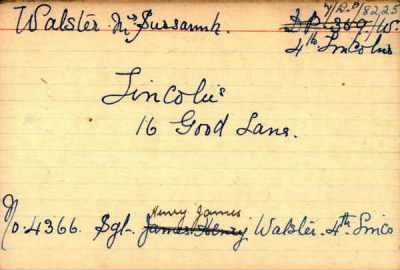 Walster Mrs Sussannh. 7/D.P/8225
D.P. 369/W.
4th Lincolns
Lincoln's
16 Good Lane.
Henry James
No. 4366. Sgt. James Henry Walster. 4th Lincs